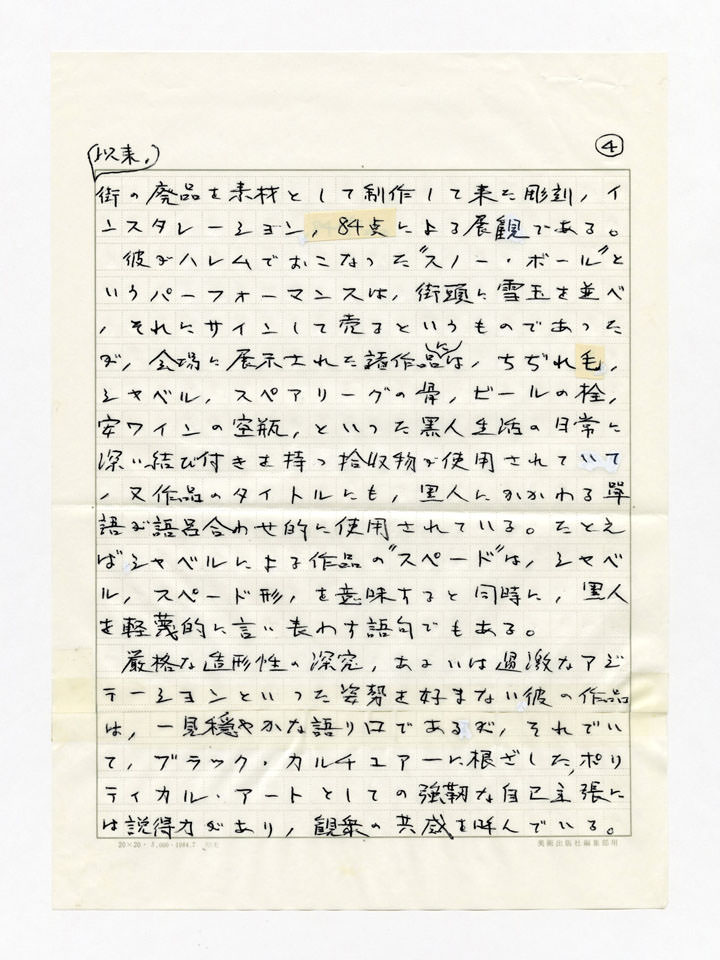 ④
以来、
街の廃品を素材として制作して来た彫刻，イ
ンスタレーション，84点による展観である。
彼がハレムでおこなった〝スノー・ボール〟と
いうパーフォーマンスは，街頭に雪玉を並べ
，それにサインして売るというものであった
が，会場に展示された諸作品には，ちぢれ毛，
シャベル，スペアリーグの骨，ビールの栓，
安ワインの空瓶，といった黒人生活の日常に
深い結び付きを持つ拾収物が使用されていて
，又作品のタイトルにも，黒人にかかわる単
語が語呂合わせ的に使用されている。たとえ
ばシャベルによる作品の〝スペード〟は，シャベ
ル，スペード形，を意味すると同時に，黒人
を軽蔑的に言い表わす語句でもある。
厳格な造形性の深究，あるいは過激なアジ
テーションといった姿勢を好まない彼の作品
は，一見穏やかな語り口であるが，それでい
て，ブラック・カルチュアーに根ざした，ポリ
ティカル・アートとしての強靭な自己主張に
は説得力があり，観衆の共感を呼んでいる。
20×20・5,000・1984.7
美術出版社編集部用